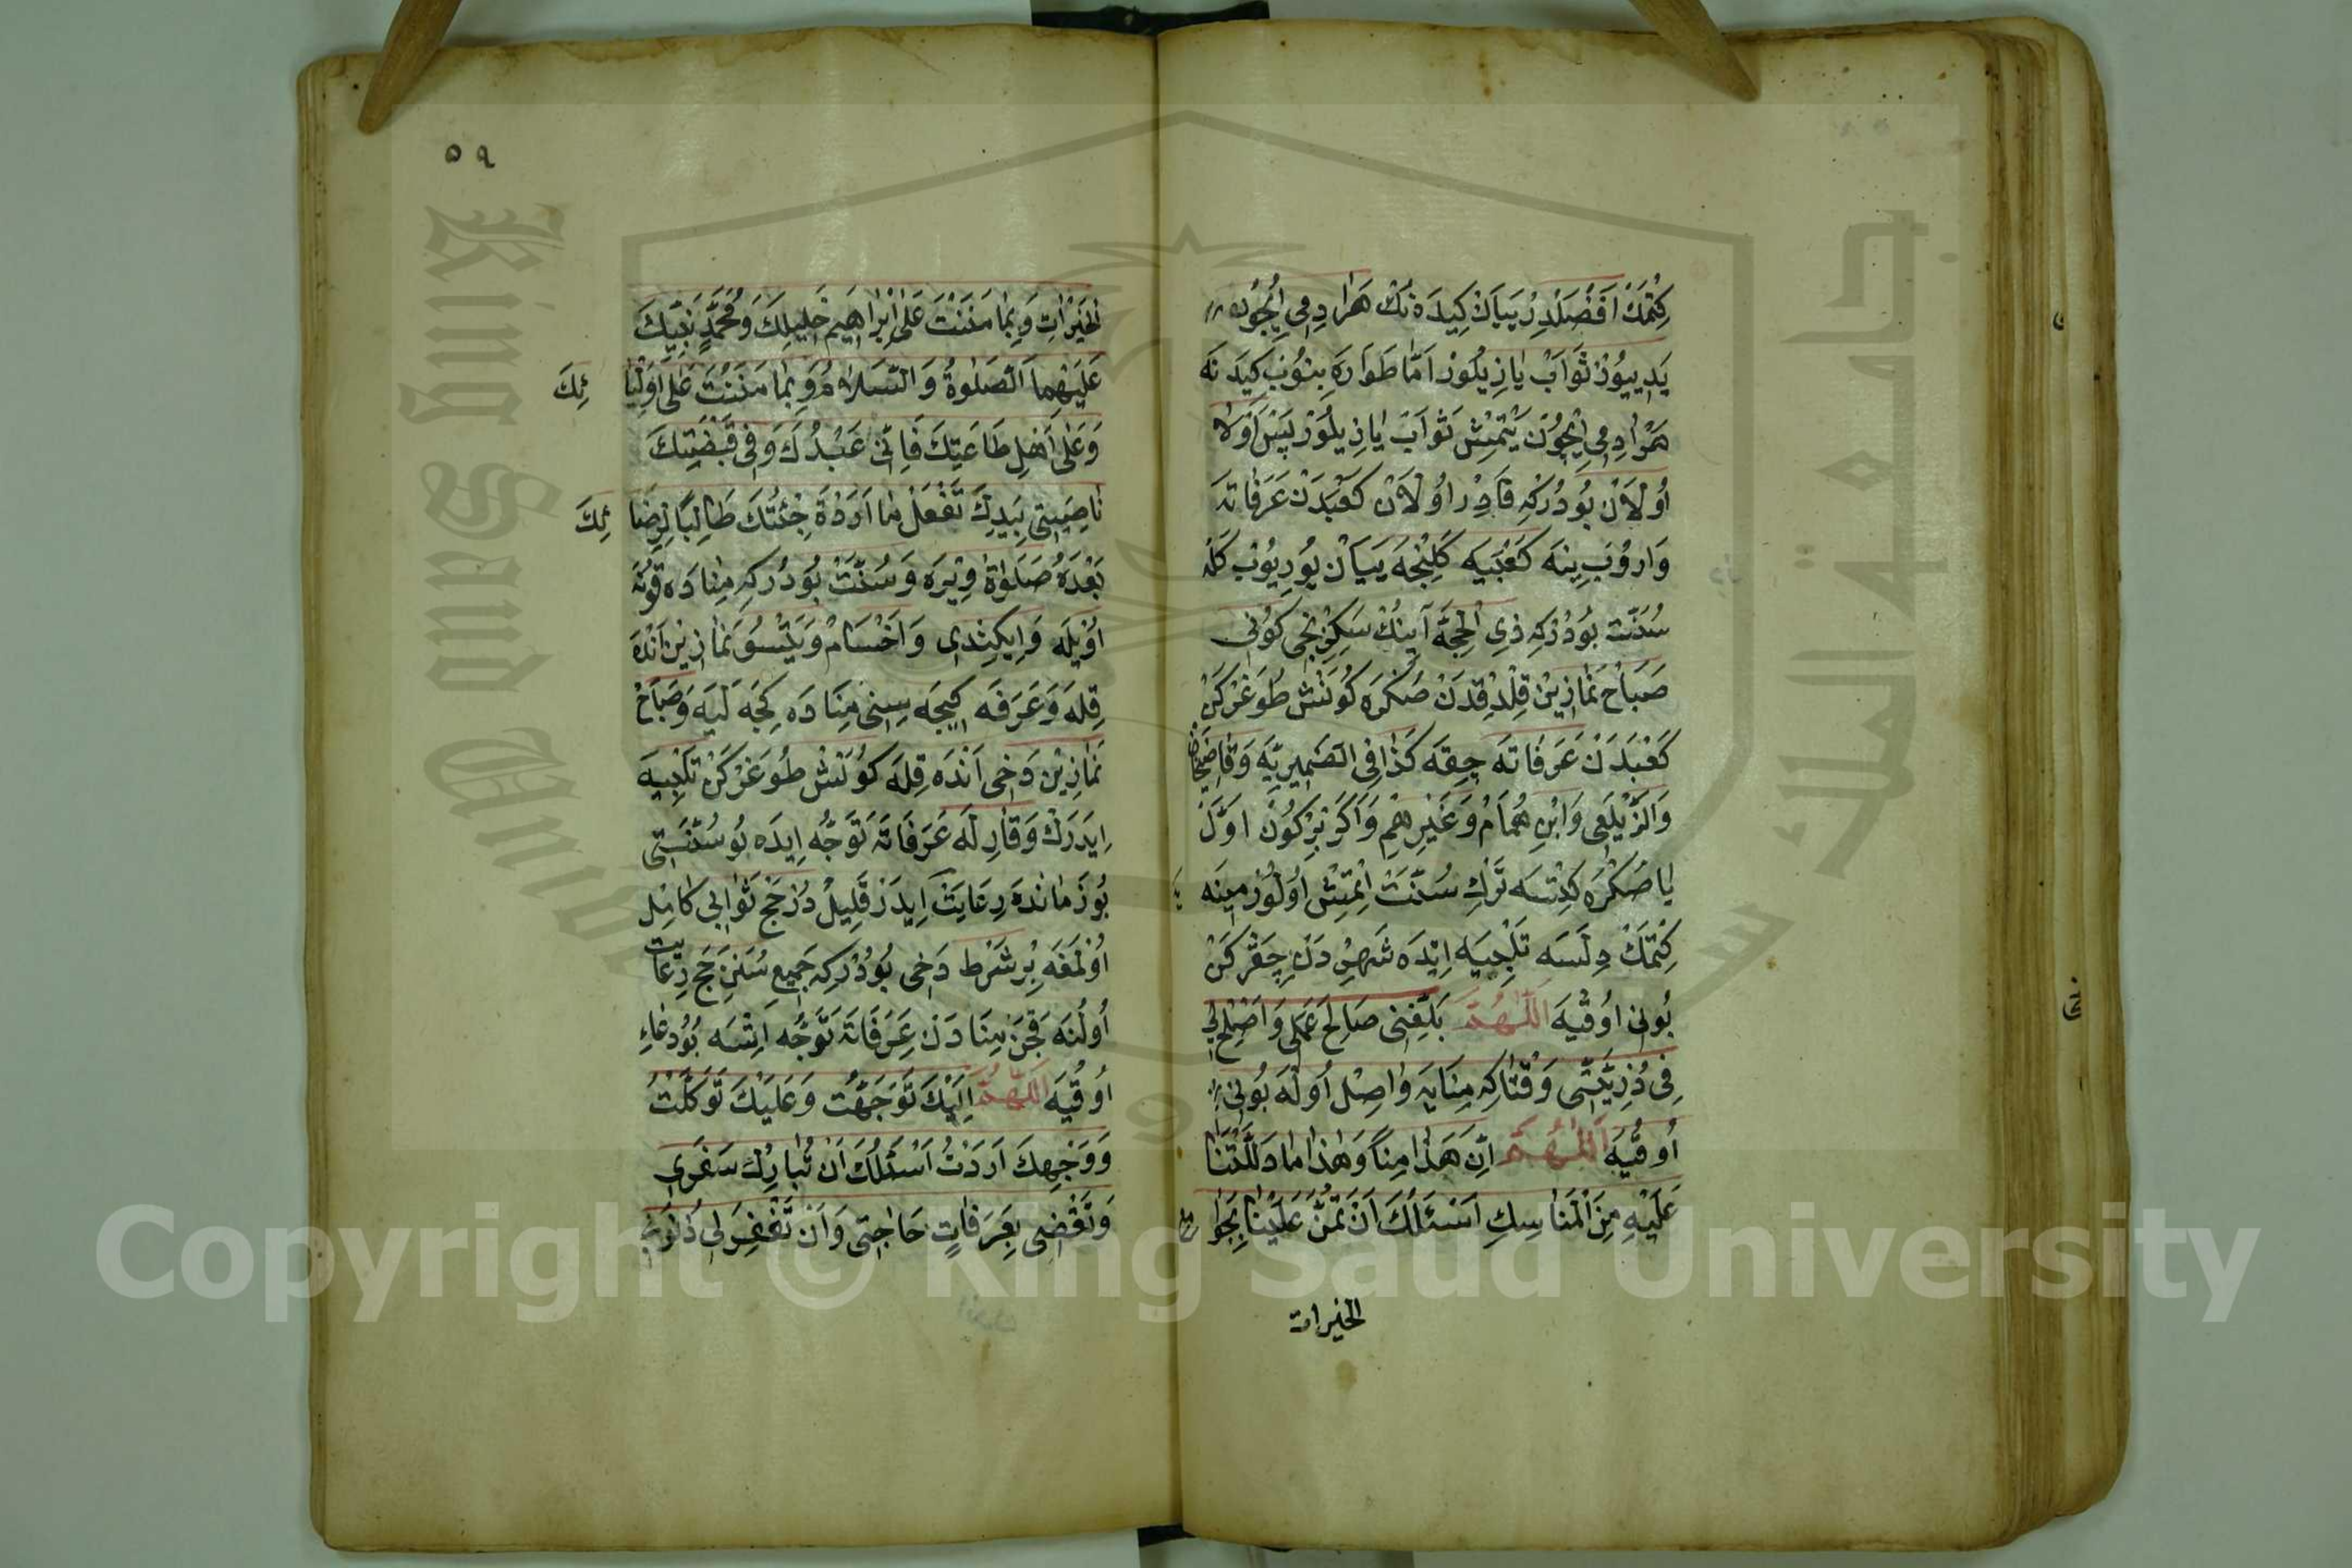 كِتْمَكْ اَفْضَلْدِرْ يَيَانْ كِيدَه نُكْ هَرْ ادِمِي اِيچُونْ
يَدِييُوزْ ثَوَابْ يَازِيلُورْ اَمَّا طَوَارَه بِنُوبْ كِيدَ نَه
هَرْ ادِمِي اِيچُونْ يَتْمِشْ ثَوَابْ يَازِيلُورْ پَسْ اَوْلَا
اُولَانْ بُودُرْكِه قَادِرْ اُولَانْ كَعْبَدَنْ عَرَفَاتَه
وَارُوبْ يِنَه كَعْبَيَه كَلِنْجَه يَيَانْ يُورِيُوبْ كَلَه
سُنَّتْ بُودُرْكِه ذِي الْحِجَّه آيِنُكْ سَكِزِنْجِي كُونِي
صَبَاحْ نَمَازِينْ قِلْدِقْدَنْ صُكْرَه كُونَشْ طُوغَرْكَنْ
كَعْبَدَنْ عَرَفَاتَه چِقَه كَذَا فِي الصَّمِيرِيَّه وَقَاضِيخَانْ
وَالزَّيْلَعِي وَابْنِ هُمَامْ وَغَيْرِهِمْ وَاَكَرْ بِرْكُونْ اوَّلْ
يَا صُكْرَه كِتْسَه تَرْكِ سُنَّتْ اِتْمِشْ اُولُورْ مِينَه يَا
كِتْمَكْ دِلَسَه تَلْبِيَه اِيْدَه شَهِرْ دَنْ چِقَرْكَنْ
بُونِي اُوقُيَه اَللّٰهُمَّ بَلِّغْنِي صَالِحَ عَمَلِي وَاَصْلِحْ لِي
فِي ذُرِّيَّتِي وَقْتَاكِه مِنَايَه وَاصِلْ اُولَه بُونِي
اُوقُيَه اَللّٰهُمَّ اِنَّ هَذَا مِنًا وَهٰذَا مَا دَلَلْتَنَا
عَلَيْهِ مِنَ الْمَنَاسِكِ اَسْئَلُكَ اَنْ تَمُنَّ عَلَيْنَا بِجَوَامِعِ
الخيرات
٥٩
الْخَيْرَاتِ وَبِمَا مَنَنْتَ عَلَى اِبْرَاهِيمَ خَلِيلِكَ وَمُحَمَّدٍ نَبِيِّكَ
عَلَيْهِمَا الصَّلٰوةُ وَالسَّلَامُ وَبِمَا مَنَنْتَ عَلَى اَوْلِيَائِكَ
وَعَلَى اَهْلِ طَاعَتِكَ فَاِنِّي عَبْدُكَ وَفِي قَبْضَتِكَ
نَاصِيَتِي بِيَدِكَ تَفْعَلُ مَا اَرَدْةَ جِئْتُكَ طَالِبًا لِرِضَائِكَ
بَعْدَهُ صَلَوَاةْ وِيْرَه وَسُنَّتْ بُودُرْكِه مِنَادَه قُونَه
اُوْيلَه وَاِيكِنْدِي وَاَخْشَامْ وَيَتْسُو نَمَازِينْ اَنْدَه
قِلَه وَعَرَفَه كِيجَه سِنِي مِنَادَه كِجَه لَيَه وَصَبَاحْ
نَمَازِينْ دَخِي اَنْدَه قِلَه كُونَشْ طُوغَرْكَنْ تَلْبِيَه
اِيدَرَكْ وَقَارِلَه عَرَفَاتَه تَوَجُّه اِيدَه بُوسُنَّتِي
بُوزَمَانْدَه رِعَايَتْ اِيدَنْ قَلِيلْ دُرْ حَجْ ثَوَابِي كَامِلْ
اُولْمَغَه بِرْ شَرْط دَخِي بُودُرْكِه جَمِيعِ سُنَنِ حَجْ رِعَايَتْ
اُولُنَه قَچَنْ مِنَادَنْ عَرَفَاتَه تَوَجُّه اِتْسَه بُودُعَاءِ
اُوقُيَه اَللّٰهُمَّ اِلَيْكَ تَوَجَّهْتُ وَعَلَيْكَ تَوَكَّلْتُ
وَوَجْهِكَ اَرَدْتُ اَسْئَلُكَ اَنْ تُبَارِكَ سَفَرِي
وَتَقْضِي بِعَرَفَاتٍ حَاجَتِي وَاَنْ تَغْفِرَ لِي ذُنُوبِي
King Saud University
جامعة الملك سعود
Copyright © King Saud University